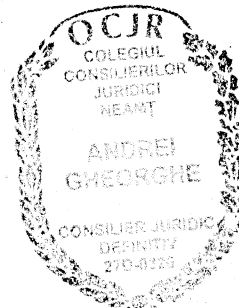 OCJR
COLEGIUL
CONSILIERILOR
JURIDICI
NEAMȚ
ANDREI
GHEORGHE
CONSILIER JURIDIC
DEFINITIV